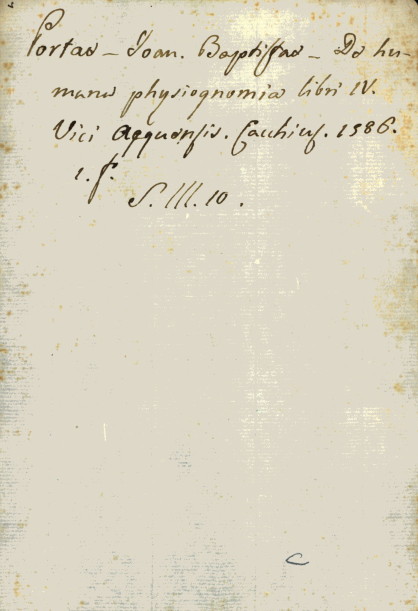 Portae - Joan. Baptistae - De hu-
mana physiognomia libri IV.
Vici Aequensis. Cacchius. 1586.
1. f.
S. III. 10.